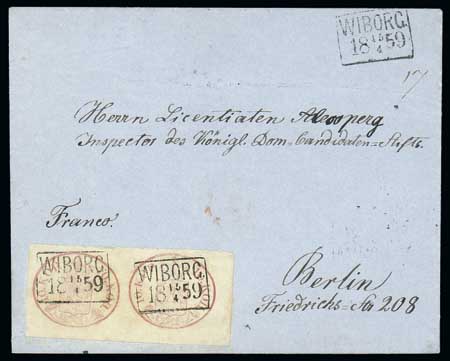 WIBORG.
18 15/4 59
17
Herrn Licentiaten
Inspector des Königl. Dom-Candidaten-Stifts.
Franco.
WIBORG.
18 15/4 59
WIBORG.
18 15/4 59
Berlin
Friedrichs-Str 208